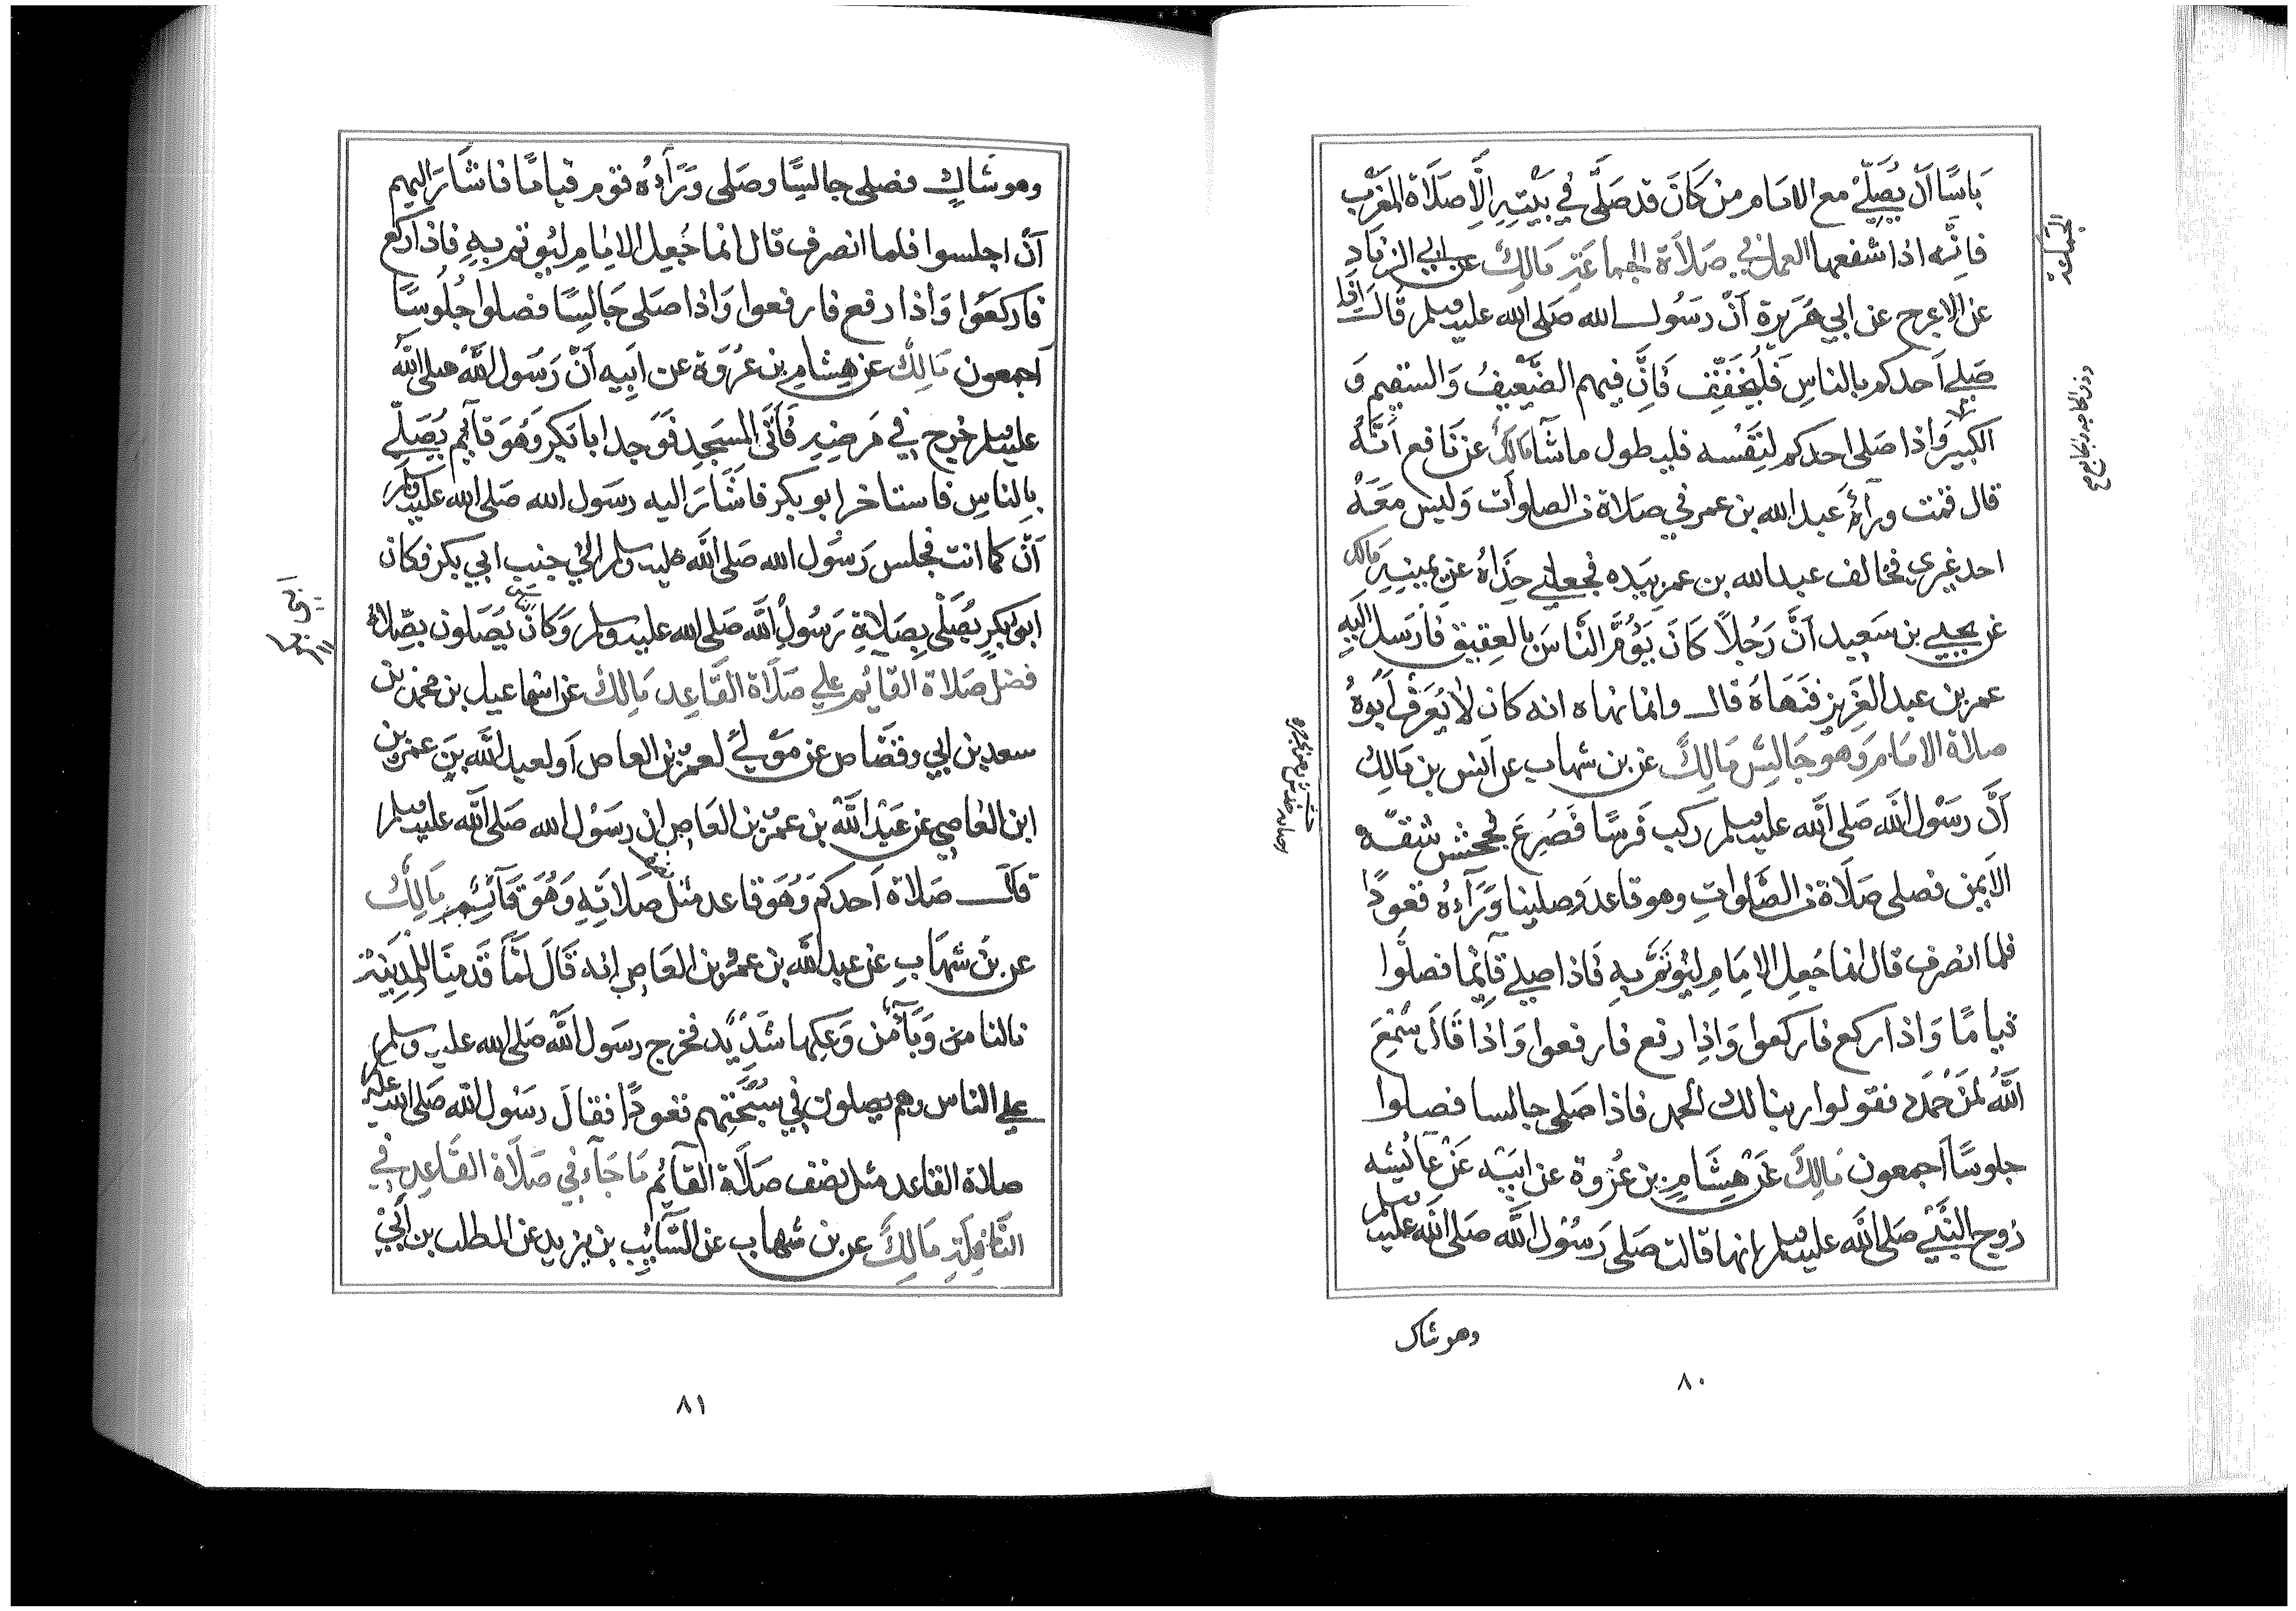 بَاسًا اَنْ يُصَلِّيَ مع الامَام من كَانَ قد صَلَّى فِي بَيْتِهِ اِلَّا صَلَاة المَغرب
فانه اذا شفعها العمل في صَلاة الجماعَة مَالِكْ عن ابي الزناد
عن الاعرج عن ابي هُرَيرة اَنّ رَسُول الله صَلى الله عليه وسلم قال اذا
صَلى اَحدكم بالناسِ فَلْيُخَفِّف فَاِنَّ فيهم الضَّعِيفُ وَالسقيم وَ
الكبير وَاِذا صَلى احدكم لنَفْسه فليطول ما شآ مَالك عن نَافِع اَنّهُ
قال قمت ورآءَ عبد الله بن عمر في صَلاة من الصلوات وَليس مَعَهُ
احد غيري فخالف عبد الله بن عمر بيَده فجعلني حِذَاهُ عن يمينه مَالك
عَن يحيي بن سَعِيد اَنَّ رَجُلاً كَانَ يَؤُمُّ النَّاسَ بالعِقيق فَاَرسل اليه
عمر بن عبد العَزيز فَنَهَاهُ قال وانما نهاه انه كان لَا يُعرَفُ اَبُوهُ
صلاة الامَام وَهو جَالِسٌ مَالِكْ عن بن شهاب عن اَنس بن مَالِك
اَنَّ رَسُول الله صَلى الله عليه وسلم ركب فَرسًا فَصُرِعَ فجحش شقه
الايمن فصلى صَلَاة من الصَّلَوَاتِ وهو قاعد وصلينا وَرَآءهُ قعودًا
فلما انصرف قال انما جُعِل الاِمَام ليُؤتَمَّ بِهِ فَاذا صلي قآئما فصلُّوا
قيامًا وَاذا ركع فاركعوا وَاِذا رفع فارفعوا وَاذَا قَالَ سَمِعَ
اللهُ لمَنْ حَمِدَه فقولوا ربنا لك الحمد فاذا صَلى جالسا فصلوا
جلوسًا اَجمعون مَالِكَ عَنْ هِشَامِ بن عُروة عن ابيه عَنْ عَائِشه
زوج النَّبي صَلى الله عليه وسلم انها قالت صَلى رَسُوْل اللهِ صَلى الله عليه وسلم
وهو شاك
٨٠
وهو شاكٍ فصلى جالِسًا وصَلى وَرَآءهُ قوم قيامًا فاشَارَ اليهم
اَنْ اجلسوا فلما انصرف قال انما جُعِل الاِمَام ليُؤتم بِهِ فاذا ركع
فاركعُوا وَاذا رفع فارفعوا وَاذا صَلى جَالِسًا فصلوا جُلُوسًا
اَجمعون مَالِكْ عن هِشَامِ بن عُرْوَة عن اَبِيه اَنّ رَسُول اللهْ صلى الله
عليه وسلم خرج في مَرضِهِ فَأتى المسَجدِ فَوَجد ابا بَكر وَهُوَ قَآئم يُصَلِّي
بالناسِ فاستاخر ابو بكر فاشَارَ اليه رَسُول الله صَلى الله عليه وسلم
اَنْ كما انت فجلس رَسُول الله صَلى الله عليه وسلم الى جنبِ ابي بكر فكان
ابو بَكرٍ يُصَلِّى بصَلَاةِ رَسُولِ الله صَلى الله عليه وسلم وَكَانَ يُصَلون بصَلاة
فضل صَلاة القائِم على صَلَاة القَاعِد مَالِكْ عن اسماعيل بن محمد بن
سعد بن ابي وقَّاص عن مَوْلىً لعَمْرو بن العاص اَو لعبد الله بن عمرو بن
ابن العَاصِي عن عَبْد الله بن عمرو بن العَاصِ ان رسَوُل الله صَلى الله عليه وسلم
قال صَلاة اَحدكم وَهُوَ قاعد مثل صَلاتِهِ وَهُوَ قَآئِم مَالِكْ
عن بن شهَابِ عن عبد الله بن عمرو بن العَاصِ انه قَالَ لمَّا قَدمنَا المدينة
نالنا من وَبَآءٌ من وَعكِها شَدِيْد فخرج رسَول الله صَلى الله عليه وسلم
على الناس وهم يصلون في سُبْحَتِهم قعودًا فقالَ رسَوُل الله صَلى الله عليه وسلم
صلاة القاعد مثل نصف صَلَاة القائم مَا جَآء في صَلَاة القَاعِد في
النَّافِلةِ مَالِكْ عن بن شهابٍ عن السَّائب بن يزيد عن المطلب بن اَبي
٨١